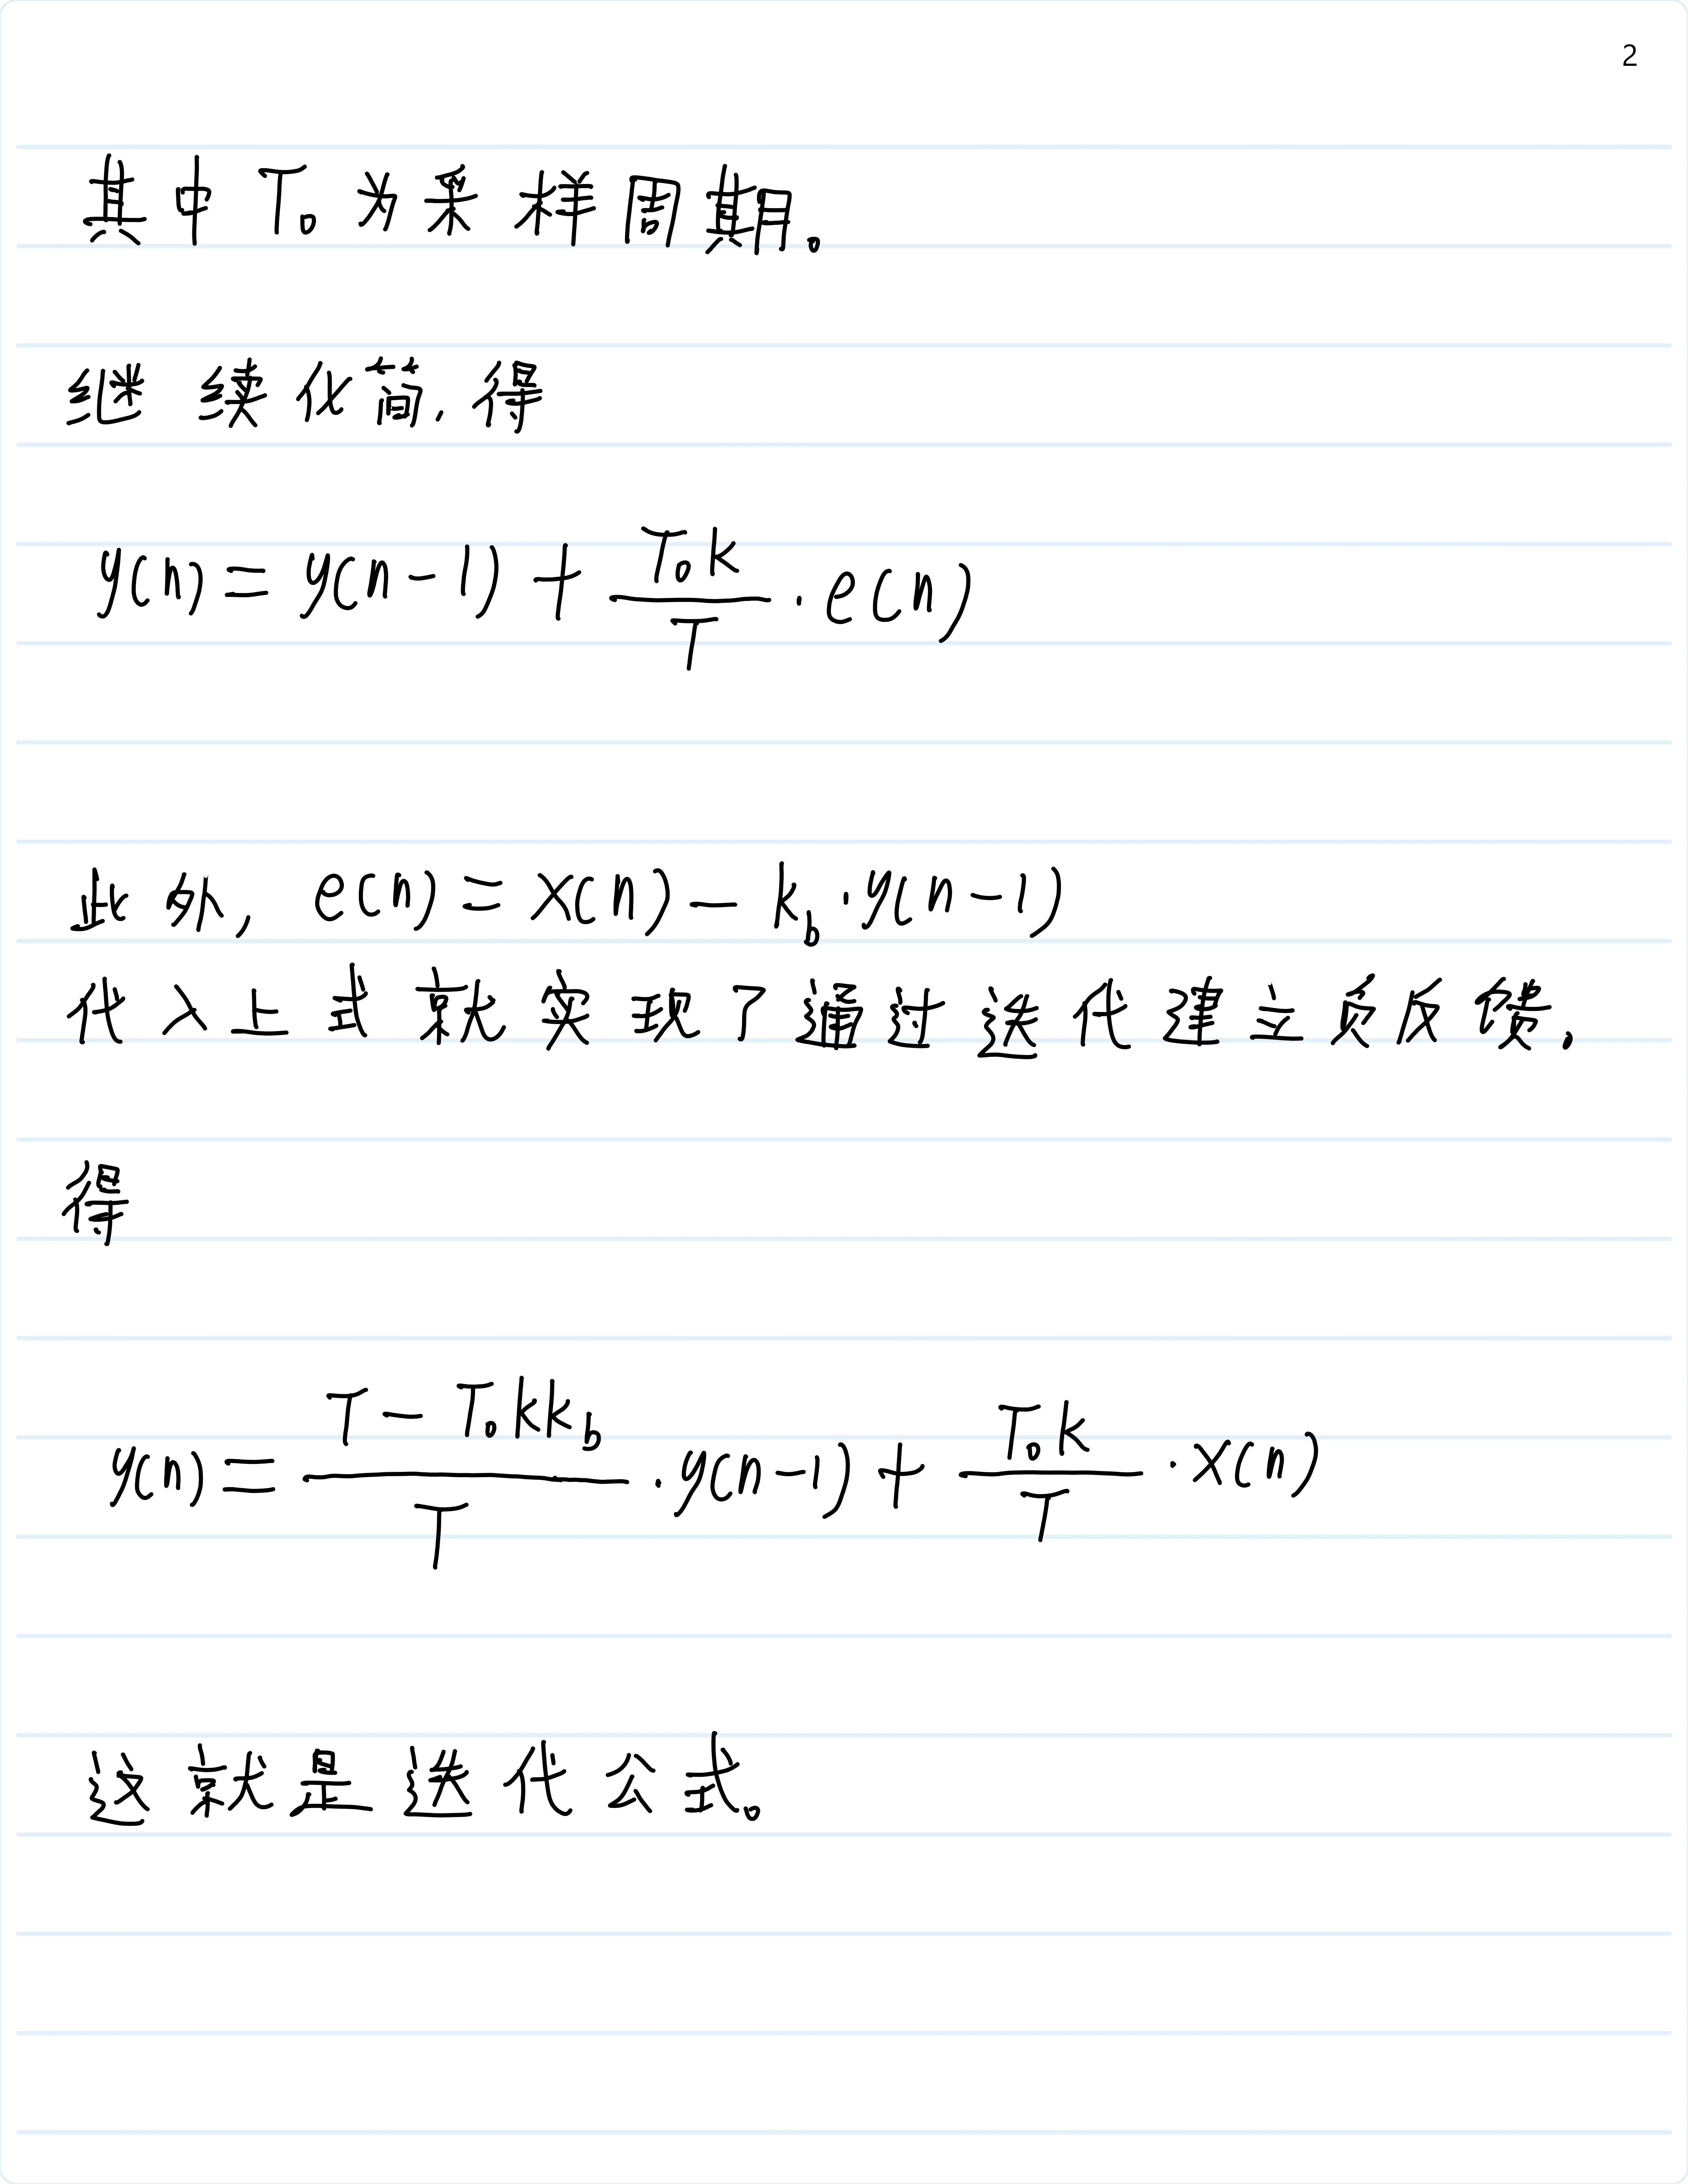 2
其中 T₀ 为采样周期。
继续化简,得
y(n) = y(n-1) + \frac{T_0 k}{T} · e(n)
此外, e(n) = x(n) - k_b · y(n-1)
代入上式就实现了通过迭代建立负反馈.
得
y(n) = \frac{T - T_0 k k_b}{T} · y(n-1) + \frac{T_0 k}{T} · x(n)
这就是迭代公式。